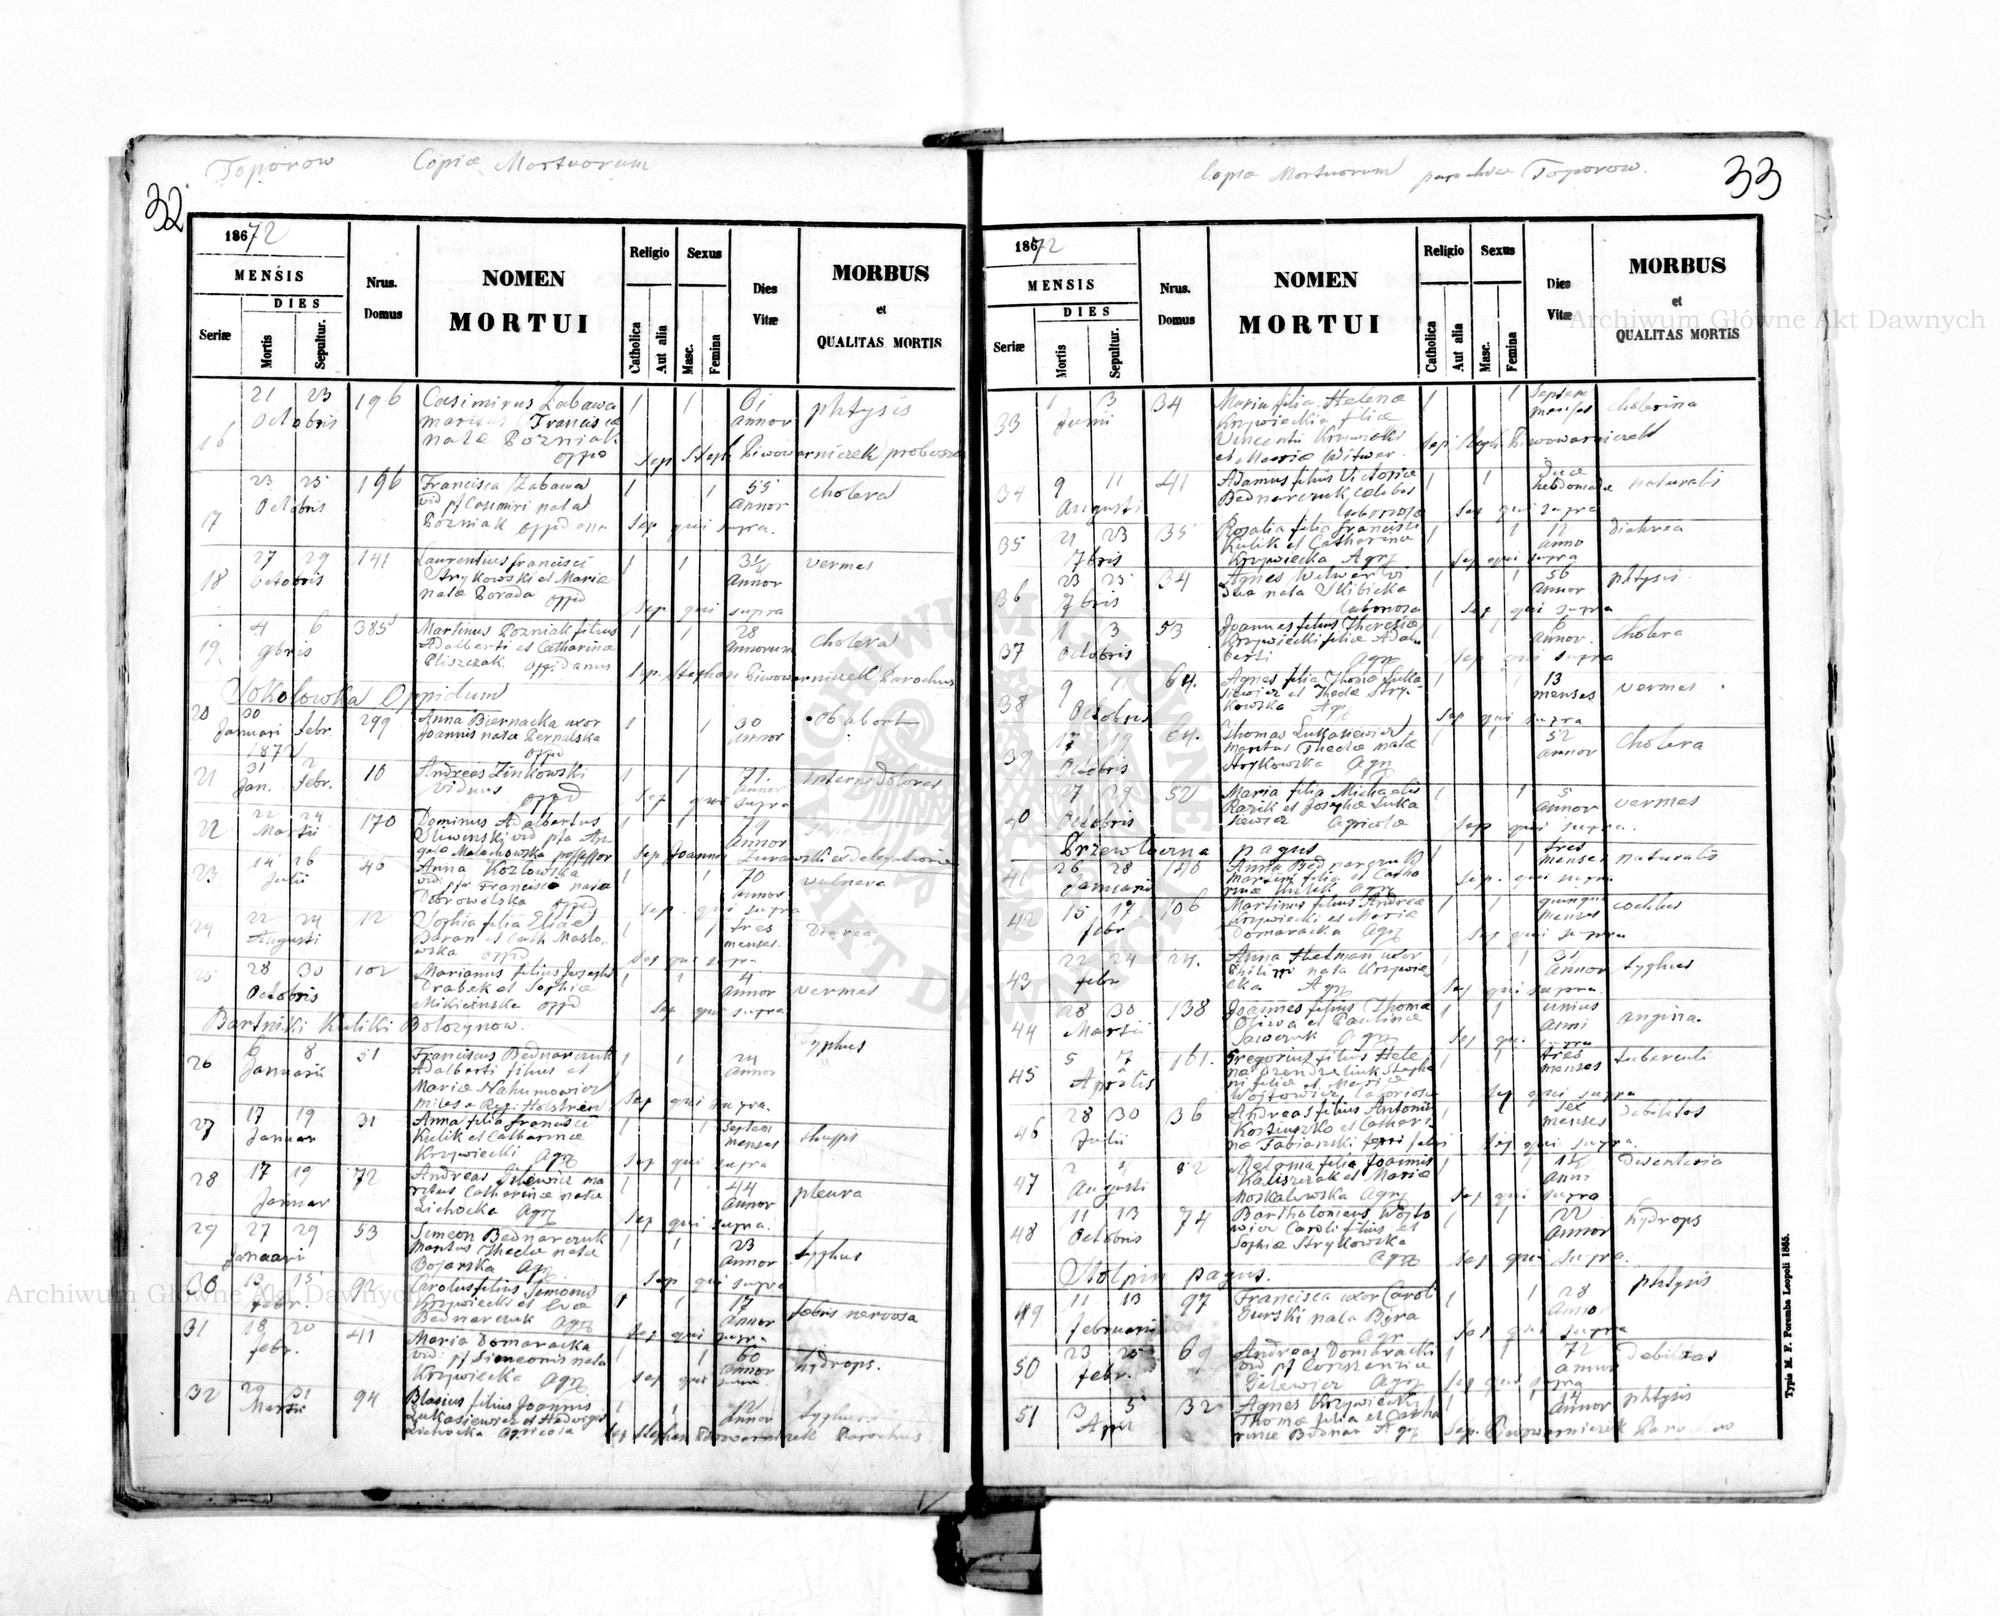 Toporow Copiæ Mortuorum
32
1872
MENSIS
DIES
Seriæ Mortis Sepultur.
Nrus. Domus
NOMEN MORTUI
Religio
Catholica Aut alia
Sexus
Masc. Femina
Dies Vitæ
MORBUS et QUALITAS MORTIS
16 21 23 Octobris 196 Casimirus Zabawa 1 1 61 annor phtysis
maritus Franciscæ
nata Pozniak
oppd Sep Steph Piwowarniczek
17 23 25 Octobris 196 Francisca Zabawa 1 1 55 annor cholera
vid pf Casimiri nata
Pozniak Sep qui supra.
18 27 29 Octobris 141 Laurentius francisci 1 1 annor vermes
Strykowski et Maria
nata Porada oppd
Sep qui supra
19 4 6 9bris 385 Martinus Pozniak filius 1 1 28 annorum cholera
Adalberti et Catharinæ
Pliszczak oppidanus
Sep. Stephan Piwowarniczek Parochus
Sokolowka Oppidum
20 30 Januari febr. 299 Anna Biernacka uxor 1 1 30 annor Ob abort
Joannis nata
1872 oppd
21 31 2 Jan. febr. 10 Andreas Zinkowski 1 1 71. annor interni dolores
viduus oppd Sep qui supra
22 22 24 Martii 170 Dominus Adalbertus 1 1 79 annor
Sliwinski vid
Malachowska possessor Sep Joannes Zurawski ex delegatione
23 14 26 Julii 46 Anna Kozlowska 1 1 70 annor vulnera
Francisca nata
Dobrowolska oppd Sep. qui supra
24 22 24 Augusti 12 Sophia filia Eliæ 1 1 tres menses. Diarea
Baran et Cath Maslo-
wska oppd Sep qui supra
25 28 30 Octobris 102 Marianus filius Josephi 1 1 4 annor vermes
Drabek et Sophiæ
oppd Sep qui supra
Bartniki Kuliki Bolozynow.
26 6 8 Januarii 51 Franciscus Bednarczuk 1 1 24 annor typhus
Adalberti filius et
Mariæ Nahumowicz
miles Sep qui supra.
27 17 19 Januar 31 Anna filia francisci 1 1 septem menses
Kulik et Catharinæ
Krzywiecki Agr Sep qui supra
28 17 19 Januar 72 Andreas Gilewicz ma 1 1 44 annor pleura
ritus Catharinæ nata
Lichocka Agr Sep qui supra.
29 27 29 Januari 53 Simeon Bednarczuk 1 1 23 annor typhus
Maritus Theclæ nata
Bojarska Agr Sep qui supra
30 13 15 febr. 92 Carolus filius Simonis 1 1 17 annor febris nervosa
Krzywiecki et Evæ
Bednarczuk Agr Sep qui supra
31 18 20 febr. 41 Maria Domaracka 1 1 60 annor hydrops.
vid. pf Simeonis nata
Krzywiecka Agr Sep qui
32 29 31 Martii 94 Blasius filius Joannis 1 1 annor typhus
Lukasiewicz et Hedvigis
Lichocka Agricola Sep Stephan Piwowarniczek Parochus.
Copiæ Mortuorum parochiæ Toporow.
33
1872
MENSIS
DIES
Seriæ Mortis Sepultur.
Nrus. Domus
NOMEN MORTUI
Religio
Catholica Aut alia
Sexus
Masc. Femina
Dies Vitæ
MORBUS et QUALITAS MORTIS
33 1 3 Junii 34 Maria filia Helenæ 1 1 septem menses cholerina
Krzywiecki filiæ
Vincentii Krzywiecki
et Mariæ Witwer. Sep. Steph. Piwowarniczek
34 9 11 Augusti 41 Adamus filius Victoriæ 1 1 duæ hebdomadæ naturalis
Bednarczuk
laboriosa Sep qui supra
35 21 23 7bris 35 Rosalia filia francisci 1 1 anno diahrea
Kulik et Catharinæ
Krzywiecka Agr Sep qui supra
36 23 25 7bris 34 Agnes Witwer vi 1 1 56 annor phtysis
dua nata Skibicka
laboriosa Sep qui supra
37 1 3 Octobris 53 Joannes filius Theresiæ 1 1 6 annor. cholera
Krzywiecki filiæ Adal
berti Agr Sep qui supra
38 9 11 Octobris 64. Agnes filia Thomæ Luka 1 1 13 menses vermes
siewicz et Theclæ Stry-
kowska Agr Sep qui supra
39 17 19 Octobris 64. Thomas Lukasiewicz 1 1 52 annor cholera
maritus Theclæ nata
Strykowska Agr
40 27 29 Octobris 52 Maria filia Michaelis 1 1 5 annor vermes
Razik et Josephæ Luka
siewicz Agricolæ Sep qui supra.
Przewloczna pagus
41 26 28 Januarii 140 Anna Bednarczuk 1 1 tres menses naturalis
Martini filia et Catha
rinæ Kulik Agr Sep. qui supra
42 15 17 febr 106 Martinus filius Andreæ 1 1 quinque menses
Krzywiecki et Mariæ
Domaracka Agr Sep qui supra
43 22 24 febr 24. Anna Hetman uxor 1 1 annor typhus
Philippi nata Krzywie
cka Agr Sep qui supra.
44 28 30 Martii 138 Joannes filius Thomæ 1 1 unius anni angina.
Oliwa et Paulinæ
Agr Sep qui supra
45 5 7 Aprilis 161. Gregorius filius Hele 1 1 tres menses tuberculi
næ
ni filiæ et Mariæ
Wojtowicz laboriosa Sep qui supra
46 28 30 Julii 36 Andreas filius Antonii 1 1 sex menses debilitas
Kosziuszko et Cathari
næ Fabianski Sep qui supra.
47 2 4 Augusti Melania filia Joannis 1 1 anni disenteria
Kaliszczak et Mariæ
Moskalewska Agr Sep qui supra
48 11 13 Octobris 74 Bartholomeus Wojto 1 1 22 annor hydrops
wicz Caroli filius et
Sophiæ Strykowska
Agr Sep qui supra.
Stolpin pagus.
49 11 13 februarii 97 Francisca uxor Caroli 1 1 28 annor phtysis
Gurski nata Byra
Agr Sep qui supra
50 23 25 febr. 69 Andreas Domaracki 1 1 72 annor debilitas
vid pf Constantiæ
Gilewicz Agr Sep qui supra
51 3 5 Apr 32 Agnes Krzywiecki 1 1 14 annor phtysis
Thomæ filia et Catha
rinæ Bodnar Agr Sep. Piwowarniczek Parochus
Typis M. F. Poremba Leopoli 1865.
Archiwum Główne Akt Dawnych
Archiwum Główne Akt Dawnych
ARCHIWUM GŁÓWNE AKT DAWNYCH